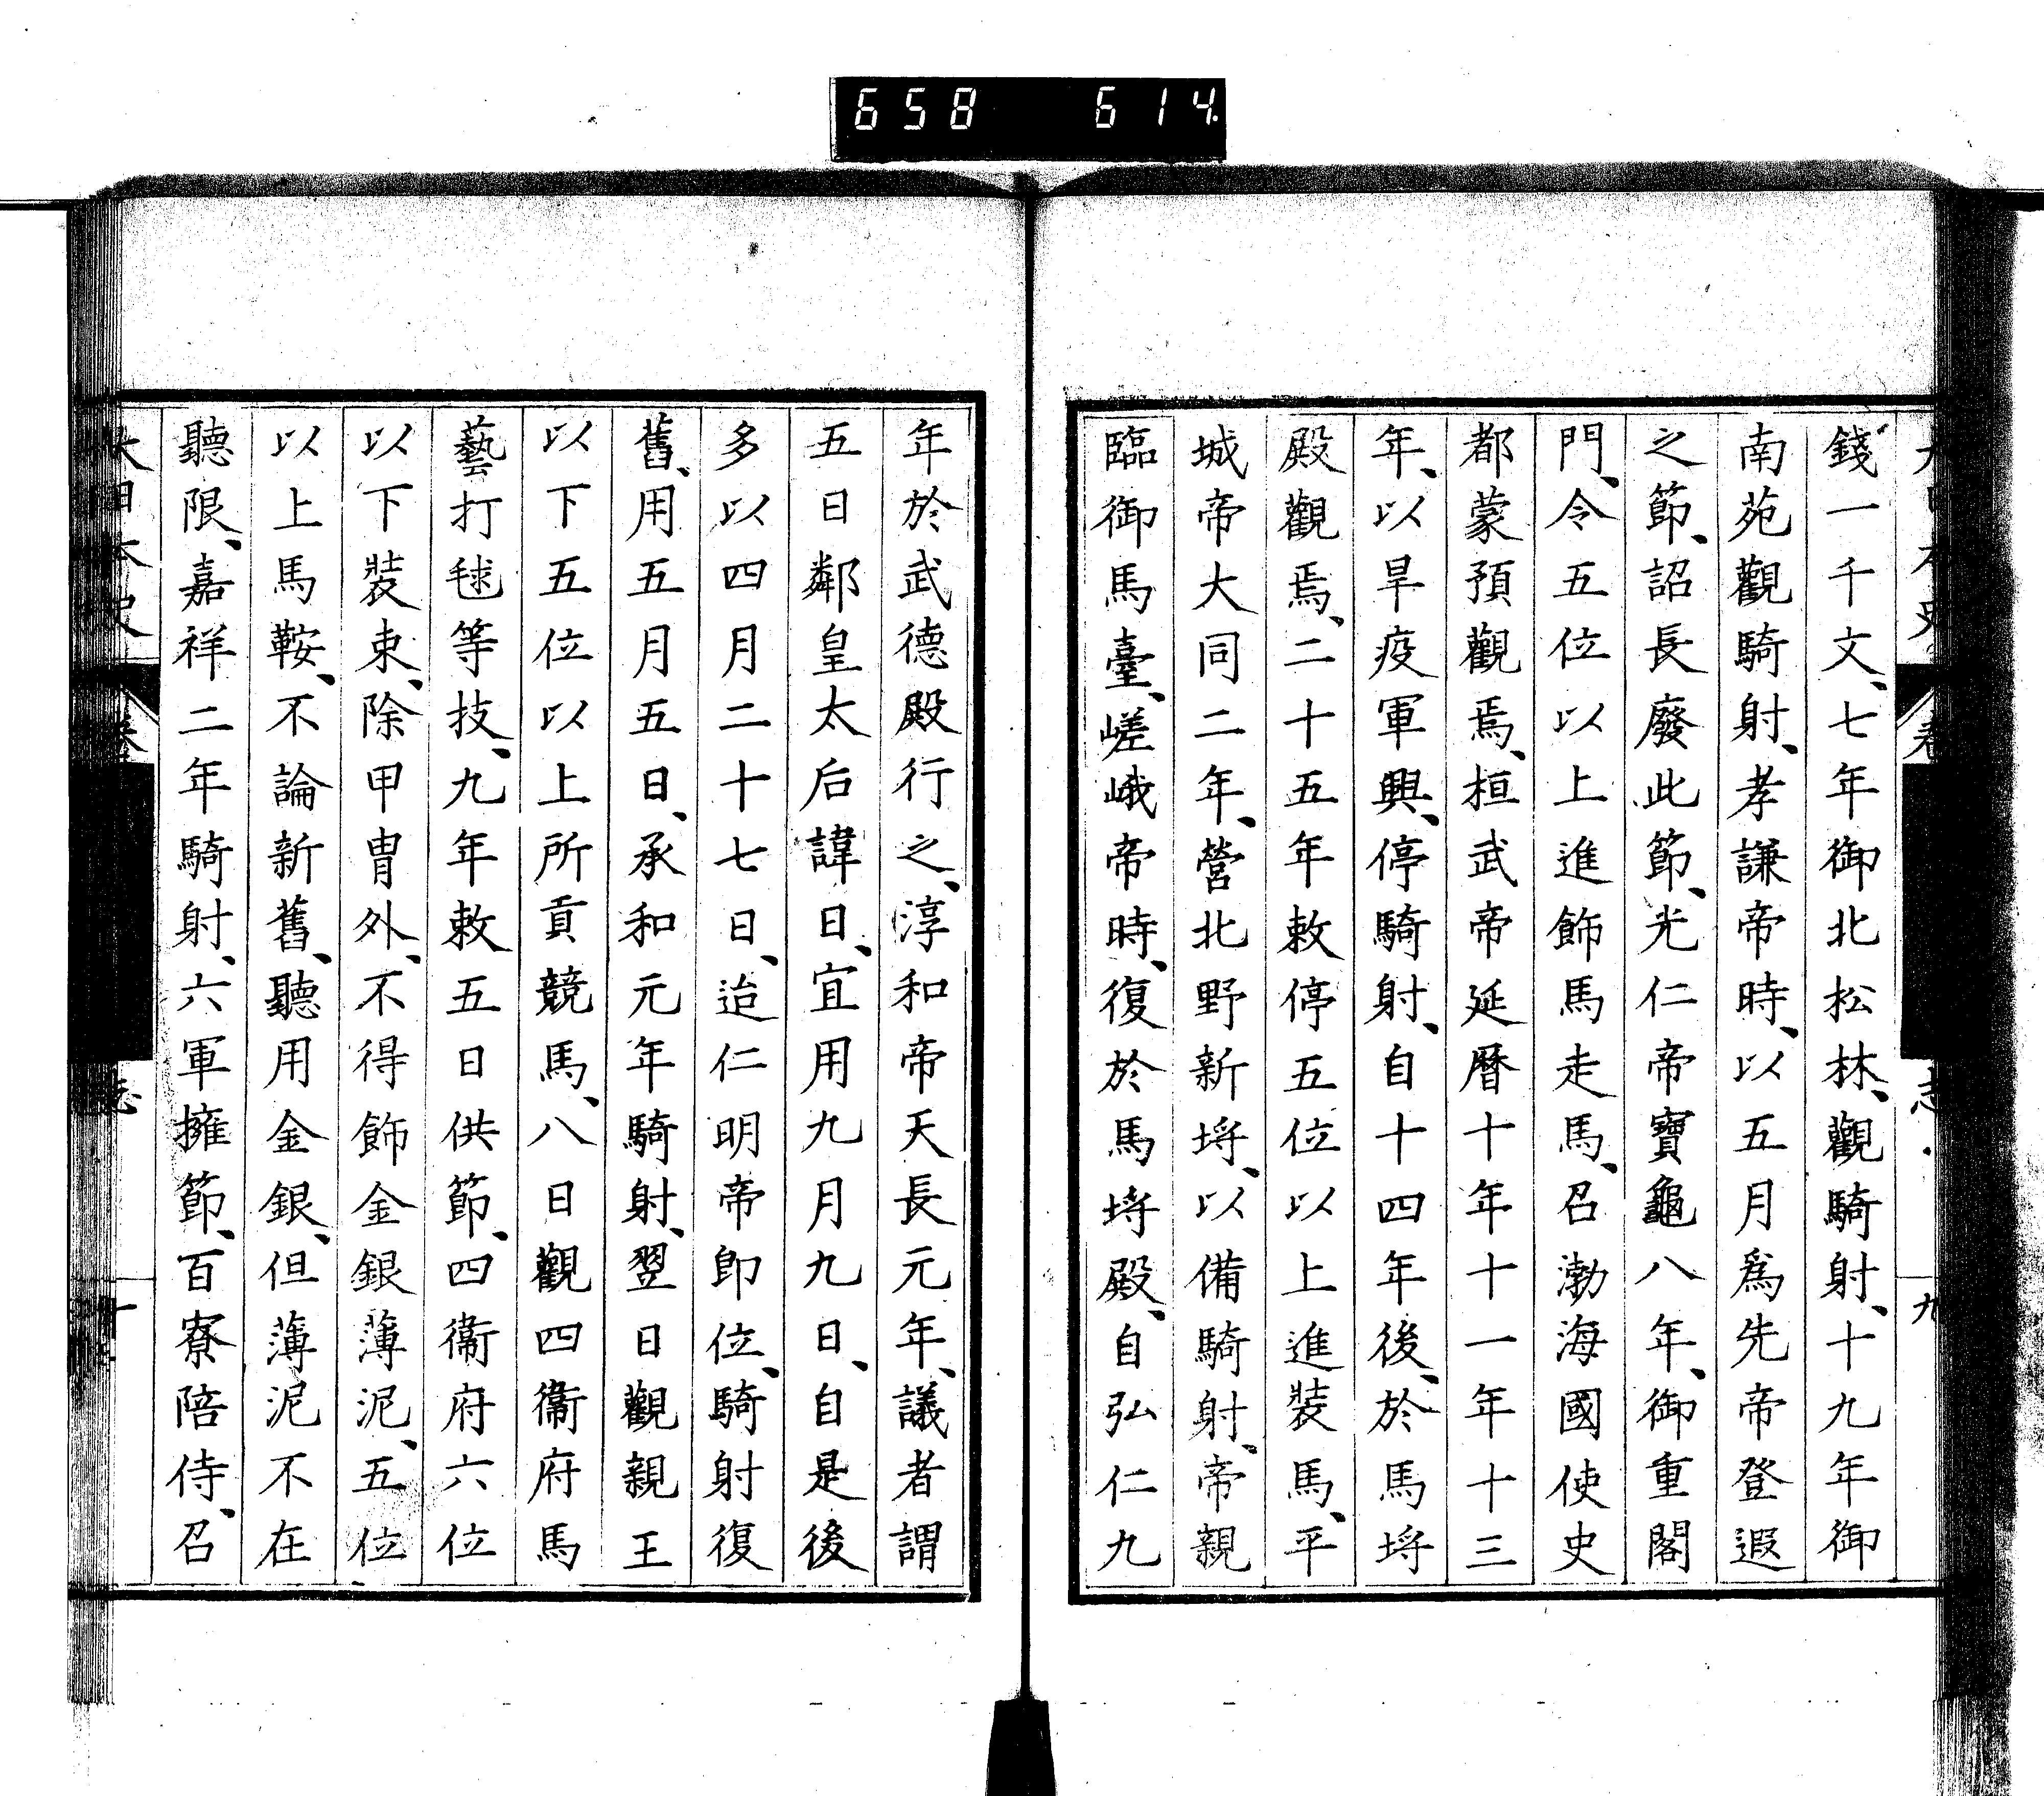 658 614
大日本史 卷 志 九
錢一千文、七年御北松林、觀騎射、十九年御
南苑觀騎射、孝謙帝時、以五月爲先帝登遐
之節、詔長廢此節、光仁帝寶龜八年、御重閣
門、令五位以上進飾馬走馬、召渤海國使史
都蒙預觀焉、桓武帝延曆十年十一年十三
年、以旱疫軍興、停騎射、自十四年後、於馬埒
殿觀焉、二十五年敕停五位以上進裝馬、平
城帝大同二年、營北野新埒、以備騎射、帝親
臨御馬臺、嵯峨帝時、復於馬埒殿、自弘仁九
年於武德殿行之、淳和帝天長元年、議者謂
五日鄰皇太后諱日、宜用九月九日、自是後
多以四月二十七日、迨仁明帝卽位、騎射復
舊、用五月五日、承和元年騎射、翌日觀親王
以下五位以上所貢競馬、八日觀四衞府馬
藝打毬等技、九年敕五日供節、四衞府六位
以下裝束、除甲冑外、不得飾金銀薄泥、五位
以上馬鞍、不論新舊、聽用金銀、但薄泥不在
聽限、嘉祥二年騎射、六軍擁節、百寮陪侍、召
大日本史 卷 志 十